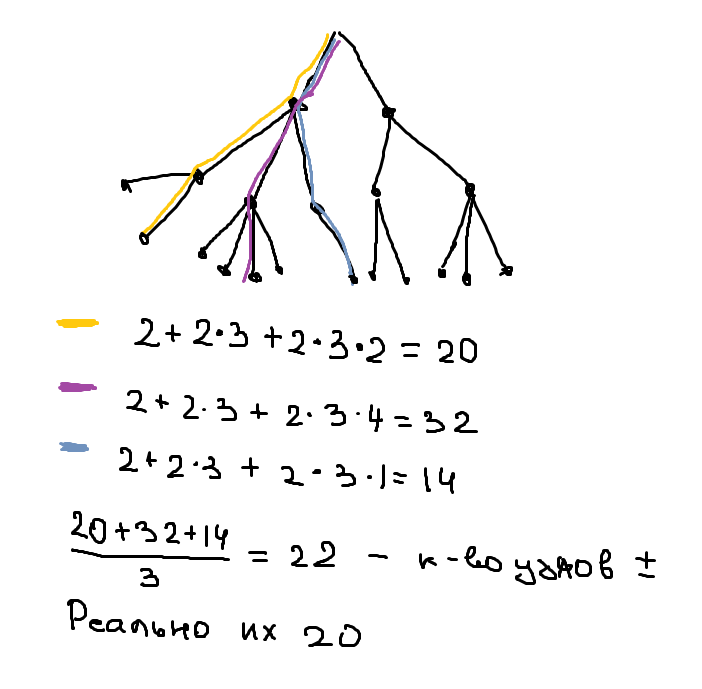 2+2·3+2·3·2=20
2+2·3+2·3·4=32
2+2·3+2·3·1=14
(20+32+14)/3 = 22 - к-во узлов ±
Реально их 20